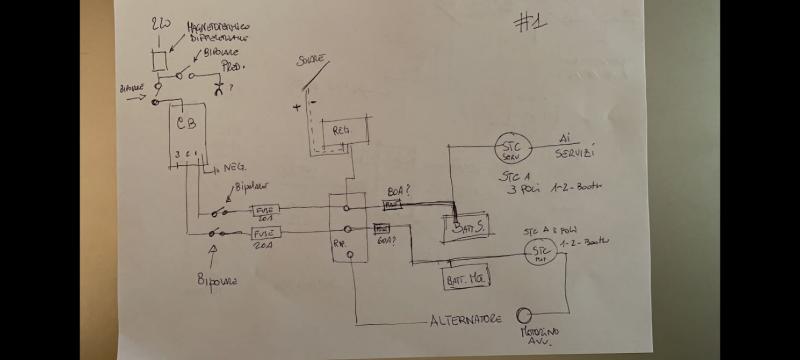 #1
220
MAGNETOTERMICO
DIFFERENZIALE
BIPOLARE
PRED.
?
BIPOLARE
SOLARE
+ -
REG.
CB
3 2 1
NEG.
STC
SERV
AI
SERVIZI
STC A
3 POLI 1-2-Both
Bipolare
FUSE
20A
80A?
FUSE
BATT S.
FUSE
20A
60A?
RIP.
STC A 3 POLI
1-2-Both
STC
MOT
BATT. MOT.
Bipolare
ALTERNATORE
MOTORINO
AVV.